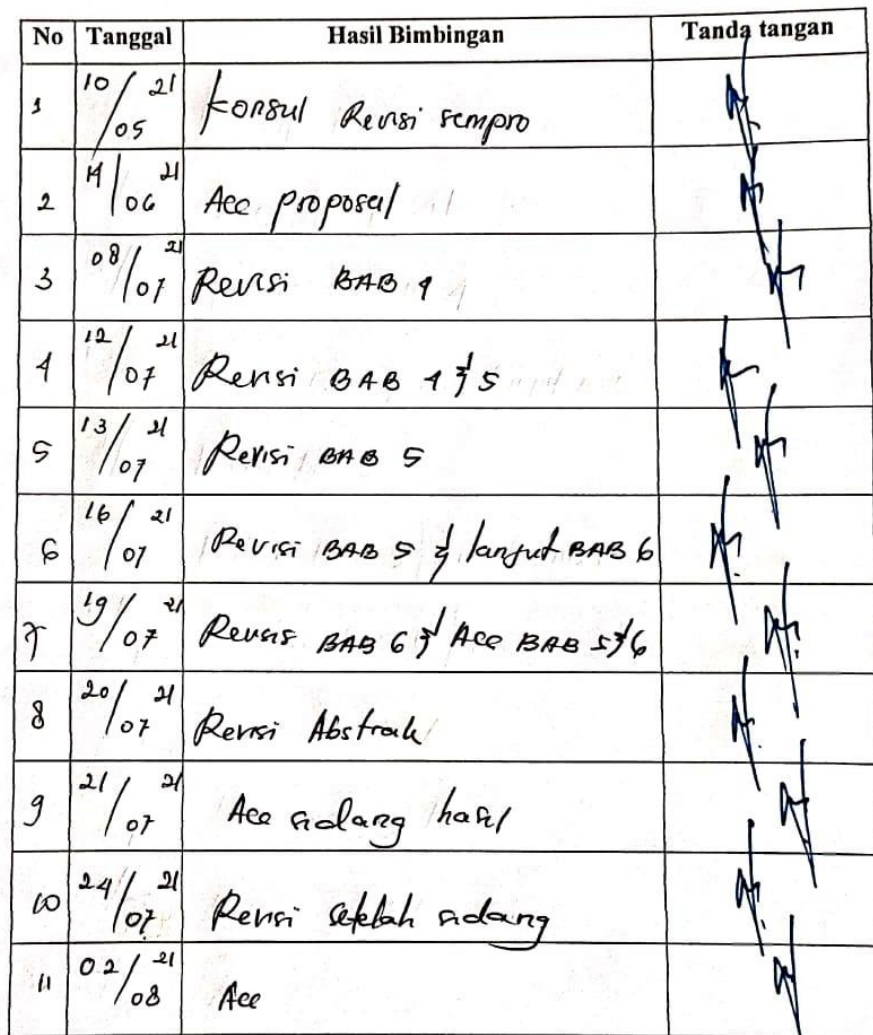 No Tanggal Hasil Bimbingan Tanda tangan
1 10/05 21 Konsul Revisi sempro
2 14/06 21 Acc proposal
3 08/07 21 Revisi BAB 4
4 12/07 21 Revisi BAB 4 & 5
5 13/07 21 Revisi BAB 5
6 16/07 21 Revisi BAB 5 & lanjut BAB 6
7 19/07 21 Revisi BAB 6 & Acc BAB 5 & 6
8 20/07 21 Revisi Abstrak
9 21/07 21 Acc sidang hasil
10 24/07 21 Revisi setelah sidang
11 02/08 21 Acc